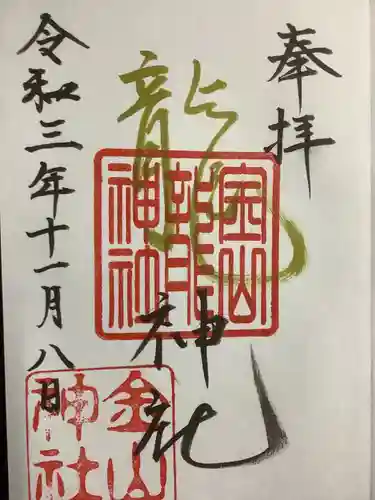 奉拝
龍神社
山
龍
神社
金山
神社
令和三年十一月八日